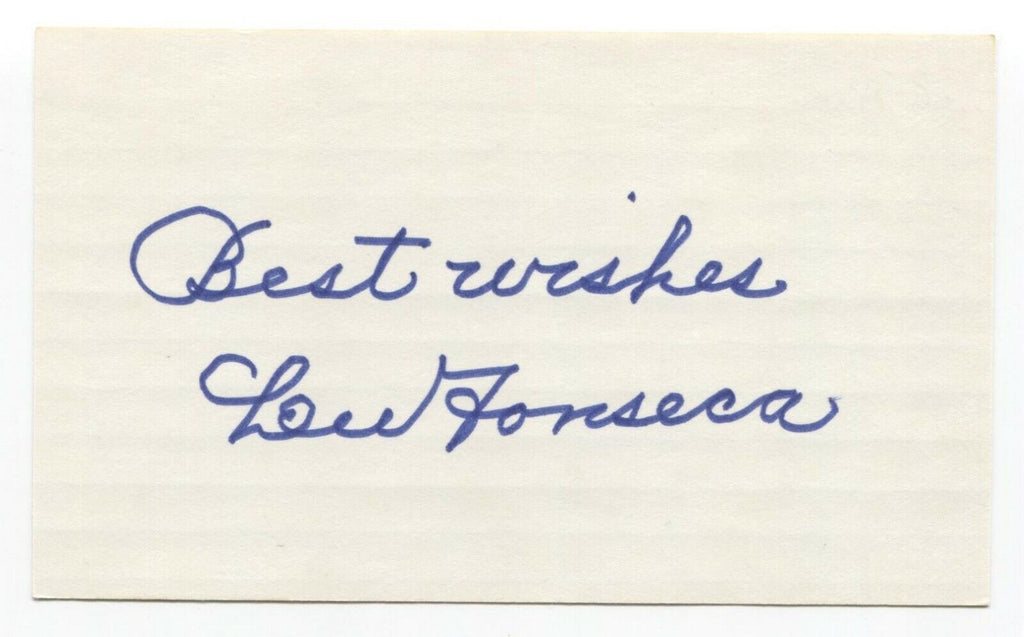 Best wishes
Lew Fonseca